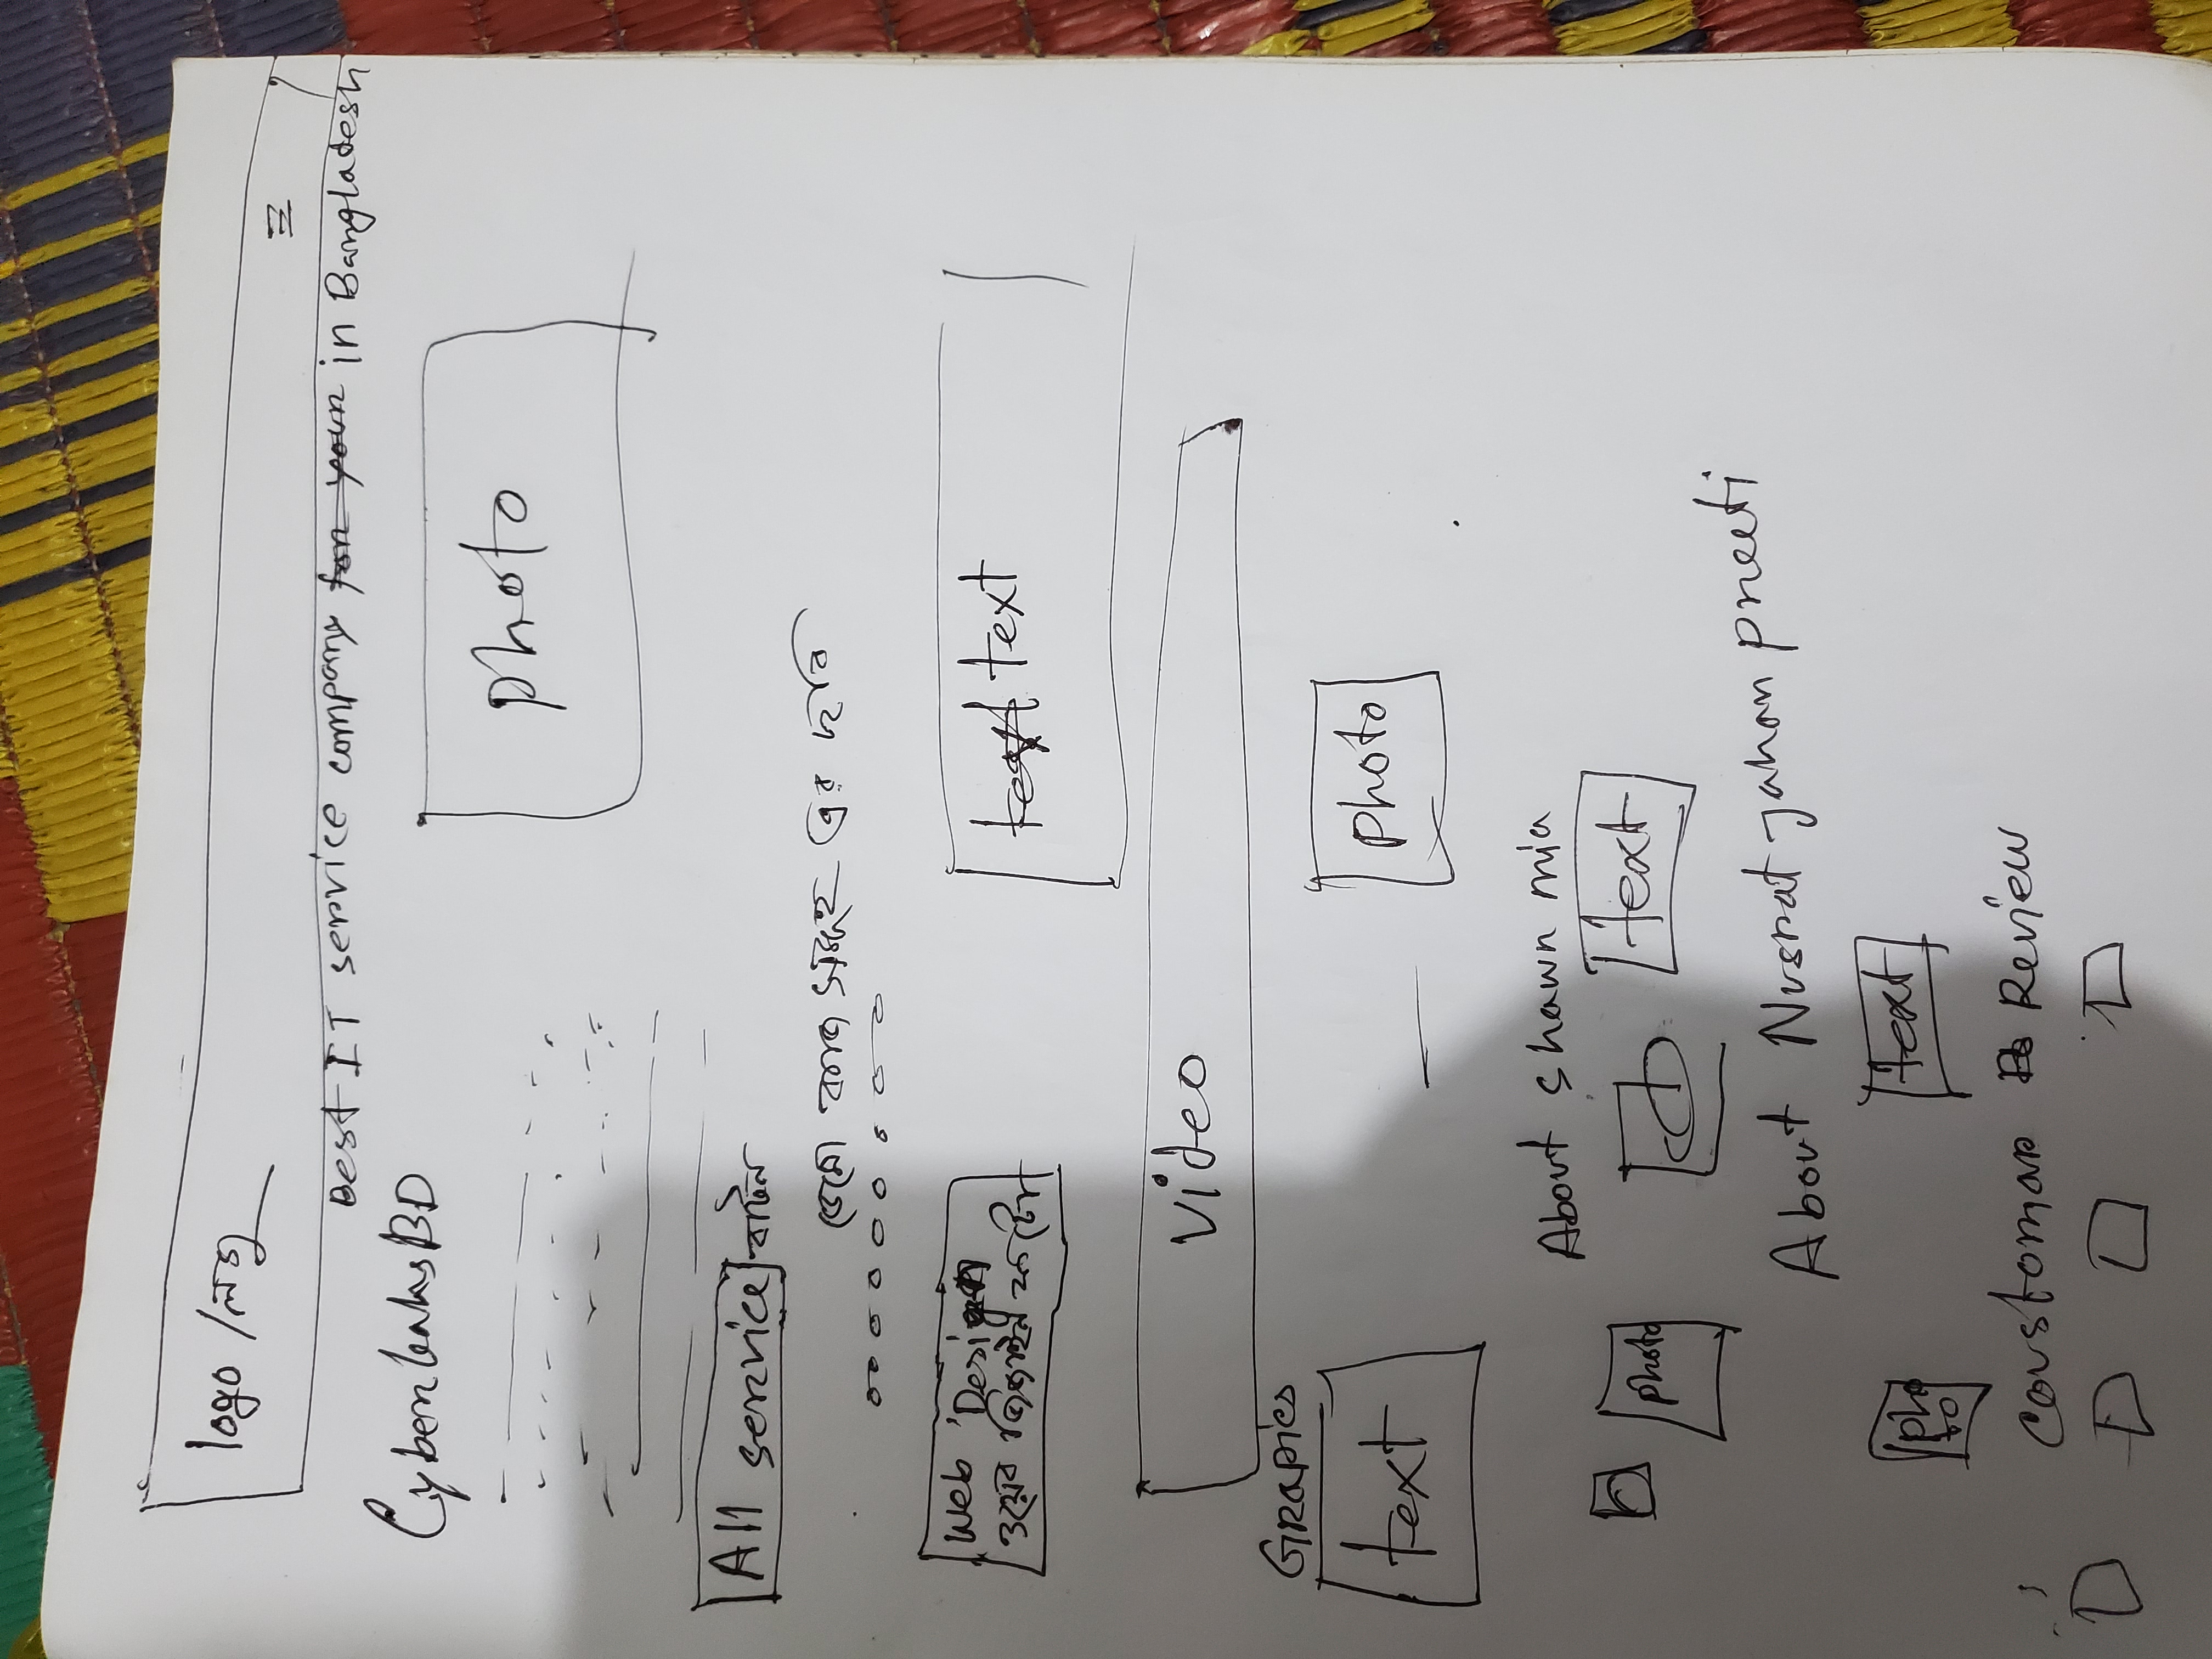 logo / লগু
Best IT service company for your in Bangladesh
CyberleaksBD
photo
All service বাটন
ডেমো কাজ সমূহ এর ছবি
Web Design
ওয়েব ডিজাইন ফটো
text text
video
Grapics
text
photo
About shawn mia
photo
text
About Nusrat jahan preeti
photo
text
Coustomar Review